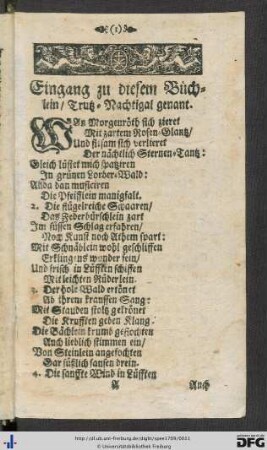 (1)
Eingang zu diesem Büch-
lein/ Trutz-Nachtigal genant.
WAn Morgenröth sich zieret
Mit zartem Rosen-Glantz/
Und sitsam sich verlieret
Der nächtlich Sternen-Tantz:
Gleich lüstet mich spatziren
Im grünen Lorber-Wald:
Allda dan musiciren
Die Pfeifflein manigfalt.
2. Die flügelreiche Schaaren/
Das Federbürschlein zart
Im süssen Schlag erfahren/
Noch Kunst noch Athem spart:
Mit Schnäblein wohl geschliffen
Erklingens wunder fein/
Und frisch in Lüfften schiffen
Mit leichten Rüderlein.
3. Der hole Wald ertönet
Ab ihrem kraussen Sang:
Mit Stauden stoltz gekrönet
Die Krufften geben Klang.
Die Bächlein krumb geflochten
Auch lieblich stimmen ein/
Von Steinlein angefochten
Gar süßlich sausen drein.
4. Die sanffte Wind in Lüfften
A Auch
http://dl.ub.uni-freiburg.de/diglit/spee1709/0021
© Universitätsbibliothek Freiburg
gefördert durch die
DFG